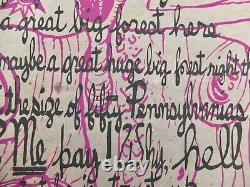 a great big forest here
maybe a great huge big forest right th
the size of fifty Pennsylvanias
Me pay 1.75? why, hell